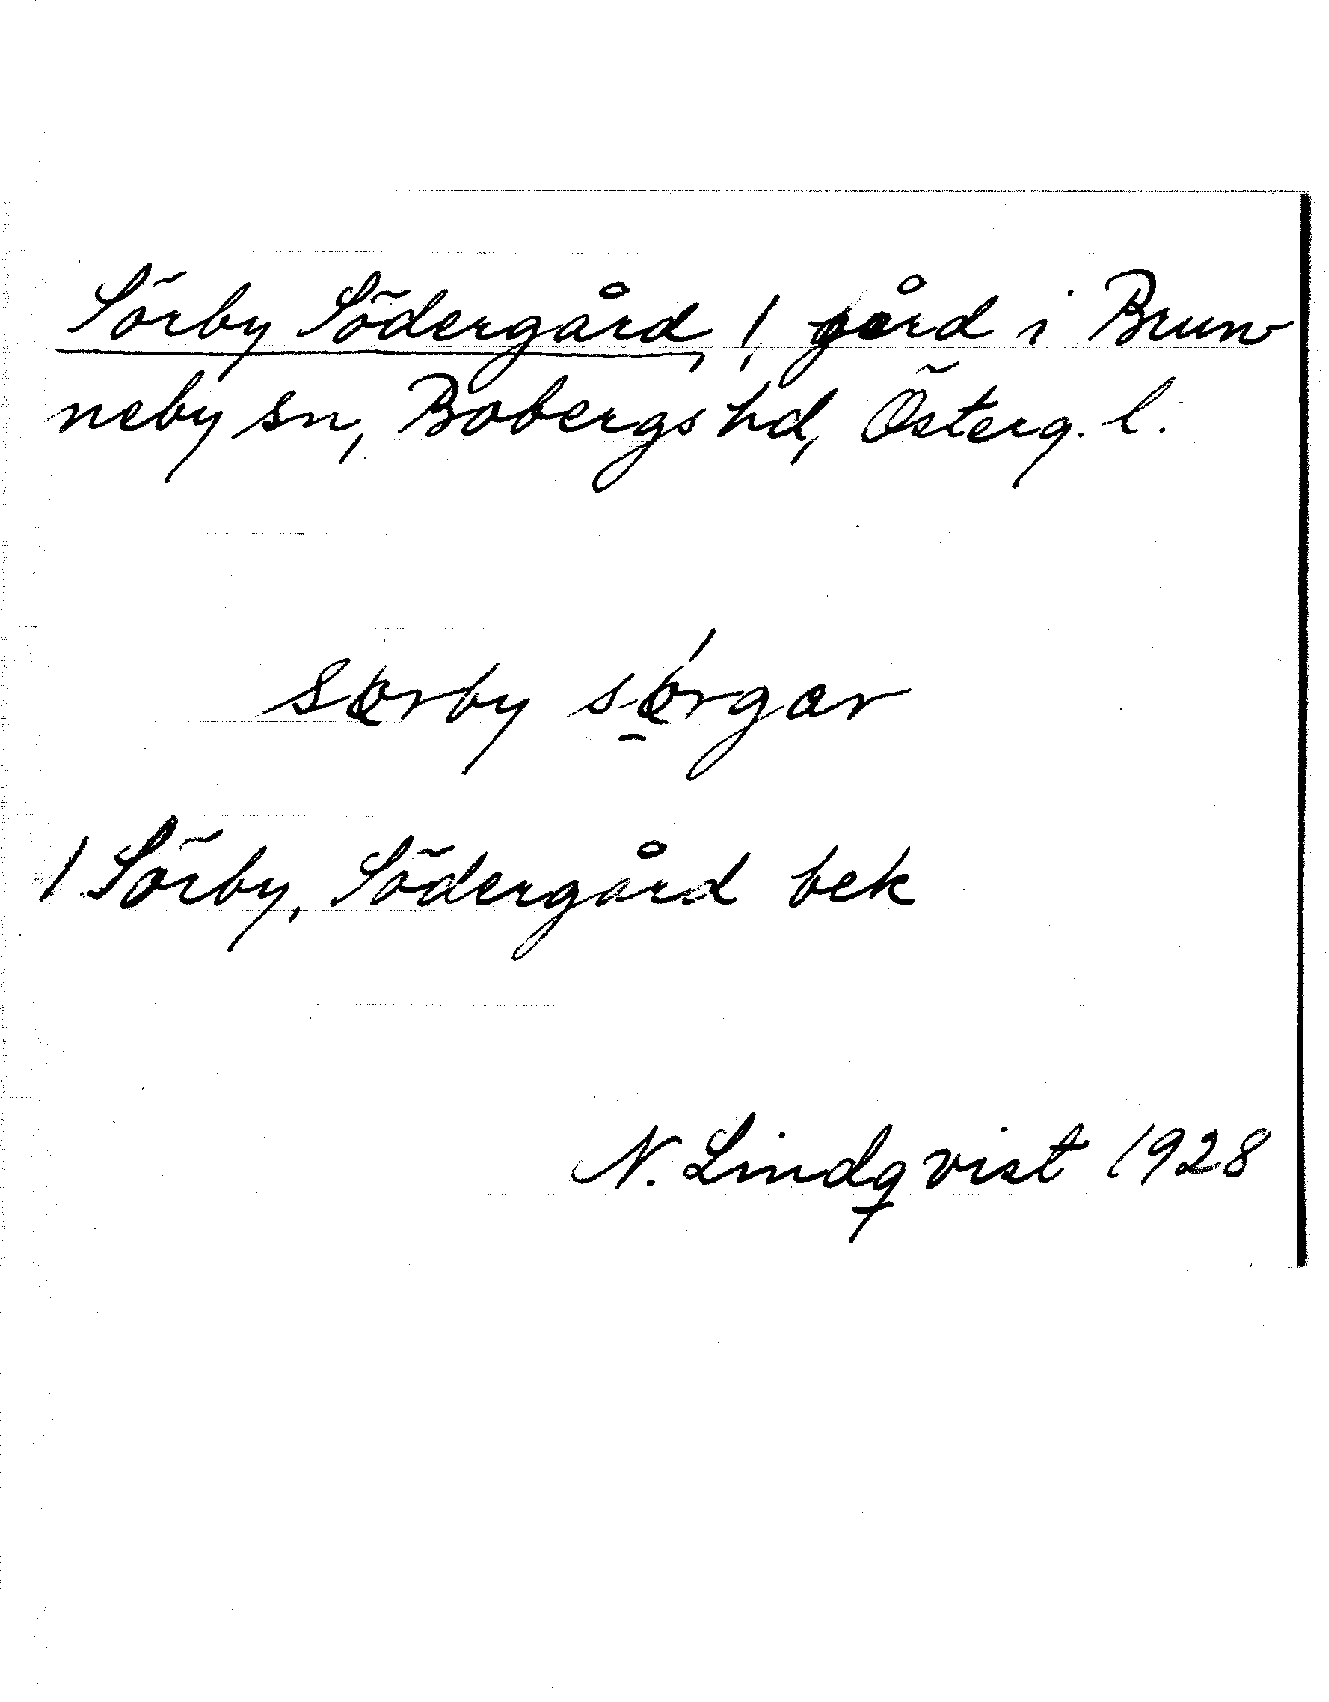 Sörby Södergård, 1 gård i Brun
neby sn, Bobergs hd, Österg. l.
sørby sǿrgar
1 Sörby, Södergård bek
N. Lindqvist 1928